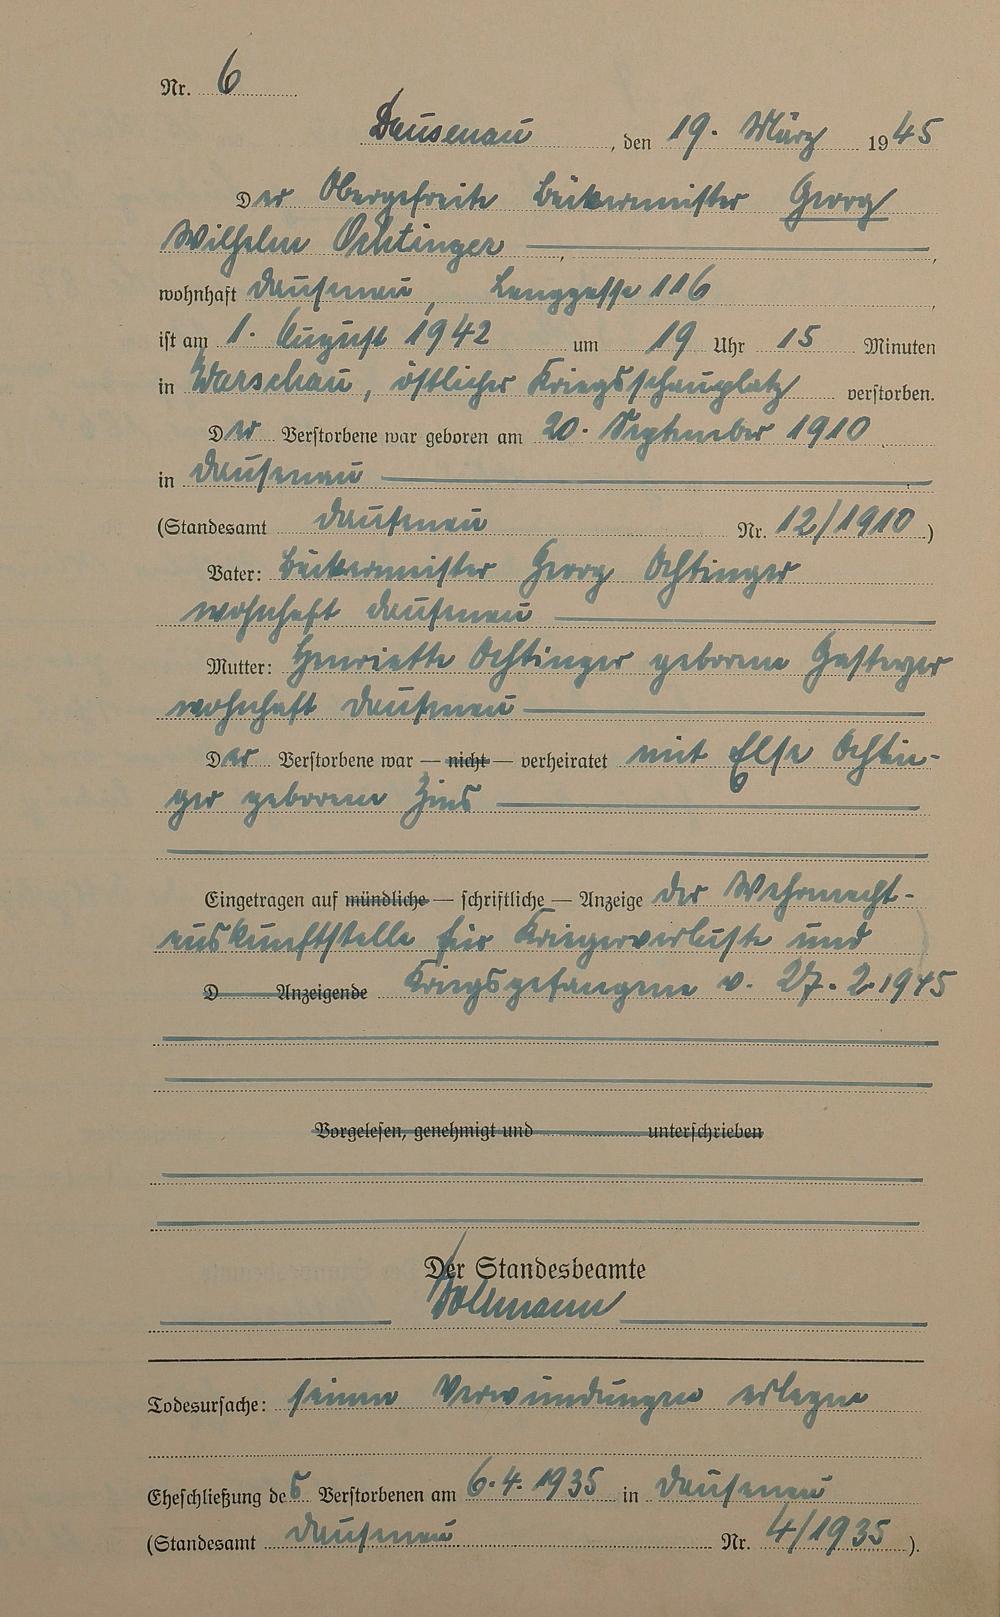 Nr. 6
Dausenau, den 19. März 1945
Der Obergefreite Bäckermeister Georg
Wilhelm Ochtinger,
wohnhaft Dausenau, Langgasse 116
ist am 1. August 1942 um 19 Uhr 15 Minuten
in Warschau, östlicher Kriegsschauplatz verstorben.
Der Verstorbene war geboren am 20. September 1910
in Dausenau
(Standesamt Dausenau Nr. 12/1910)
Vater: Bäckermeister Georg Ochtinger
wohnhaft Dausenau
Mutter: Henriette Ochtinger geborene Gasteyer
wohnhaft Dausenau
Der Verstorbene war — nicht — verheiratet mit Else Ochtin-
ger geborene Zins
Eingetragen auf mündliche — schriftliche — Anzeige der Wehrmacht-
auskunftstelle für Kriegerverluste und
D Anzeigende Kriegsgefangene v. 27.2.1945
Vorgelesen, genehmigt und unterschrieben
Der Standesbeamte
Todesursache: seinen Verwundungen erlegen
Eheschließung des Verstorbenen am 6.4.1935 in Dausenau
(Standesamt Dausenau Nr. 4/1935).